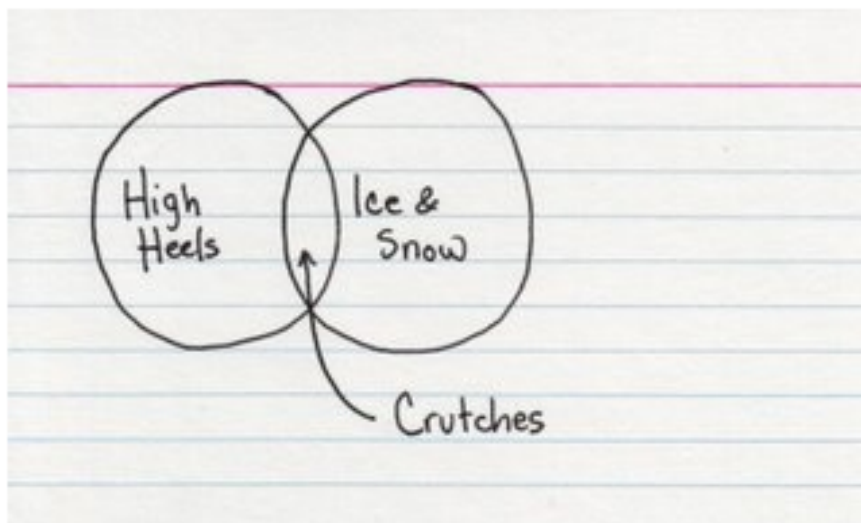 High
Heels
Ice &
Snow
Crutches